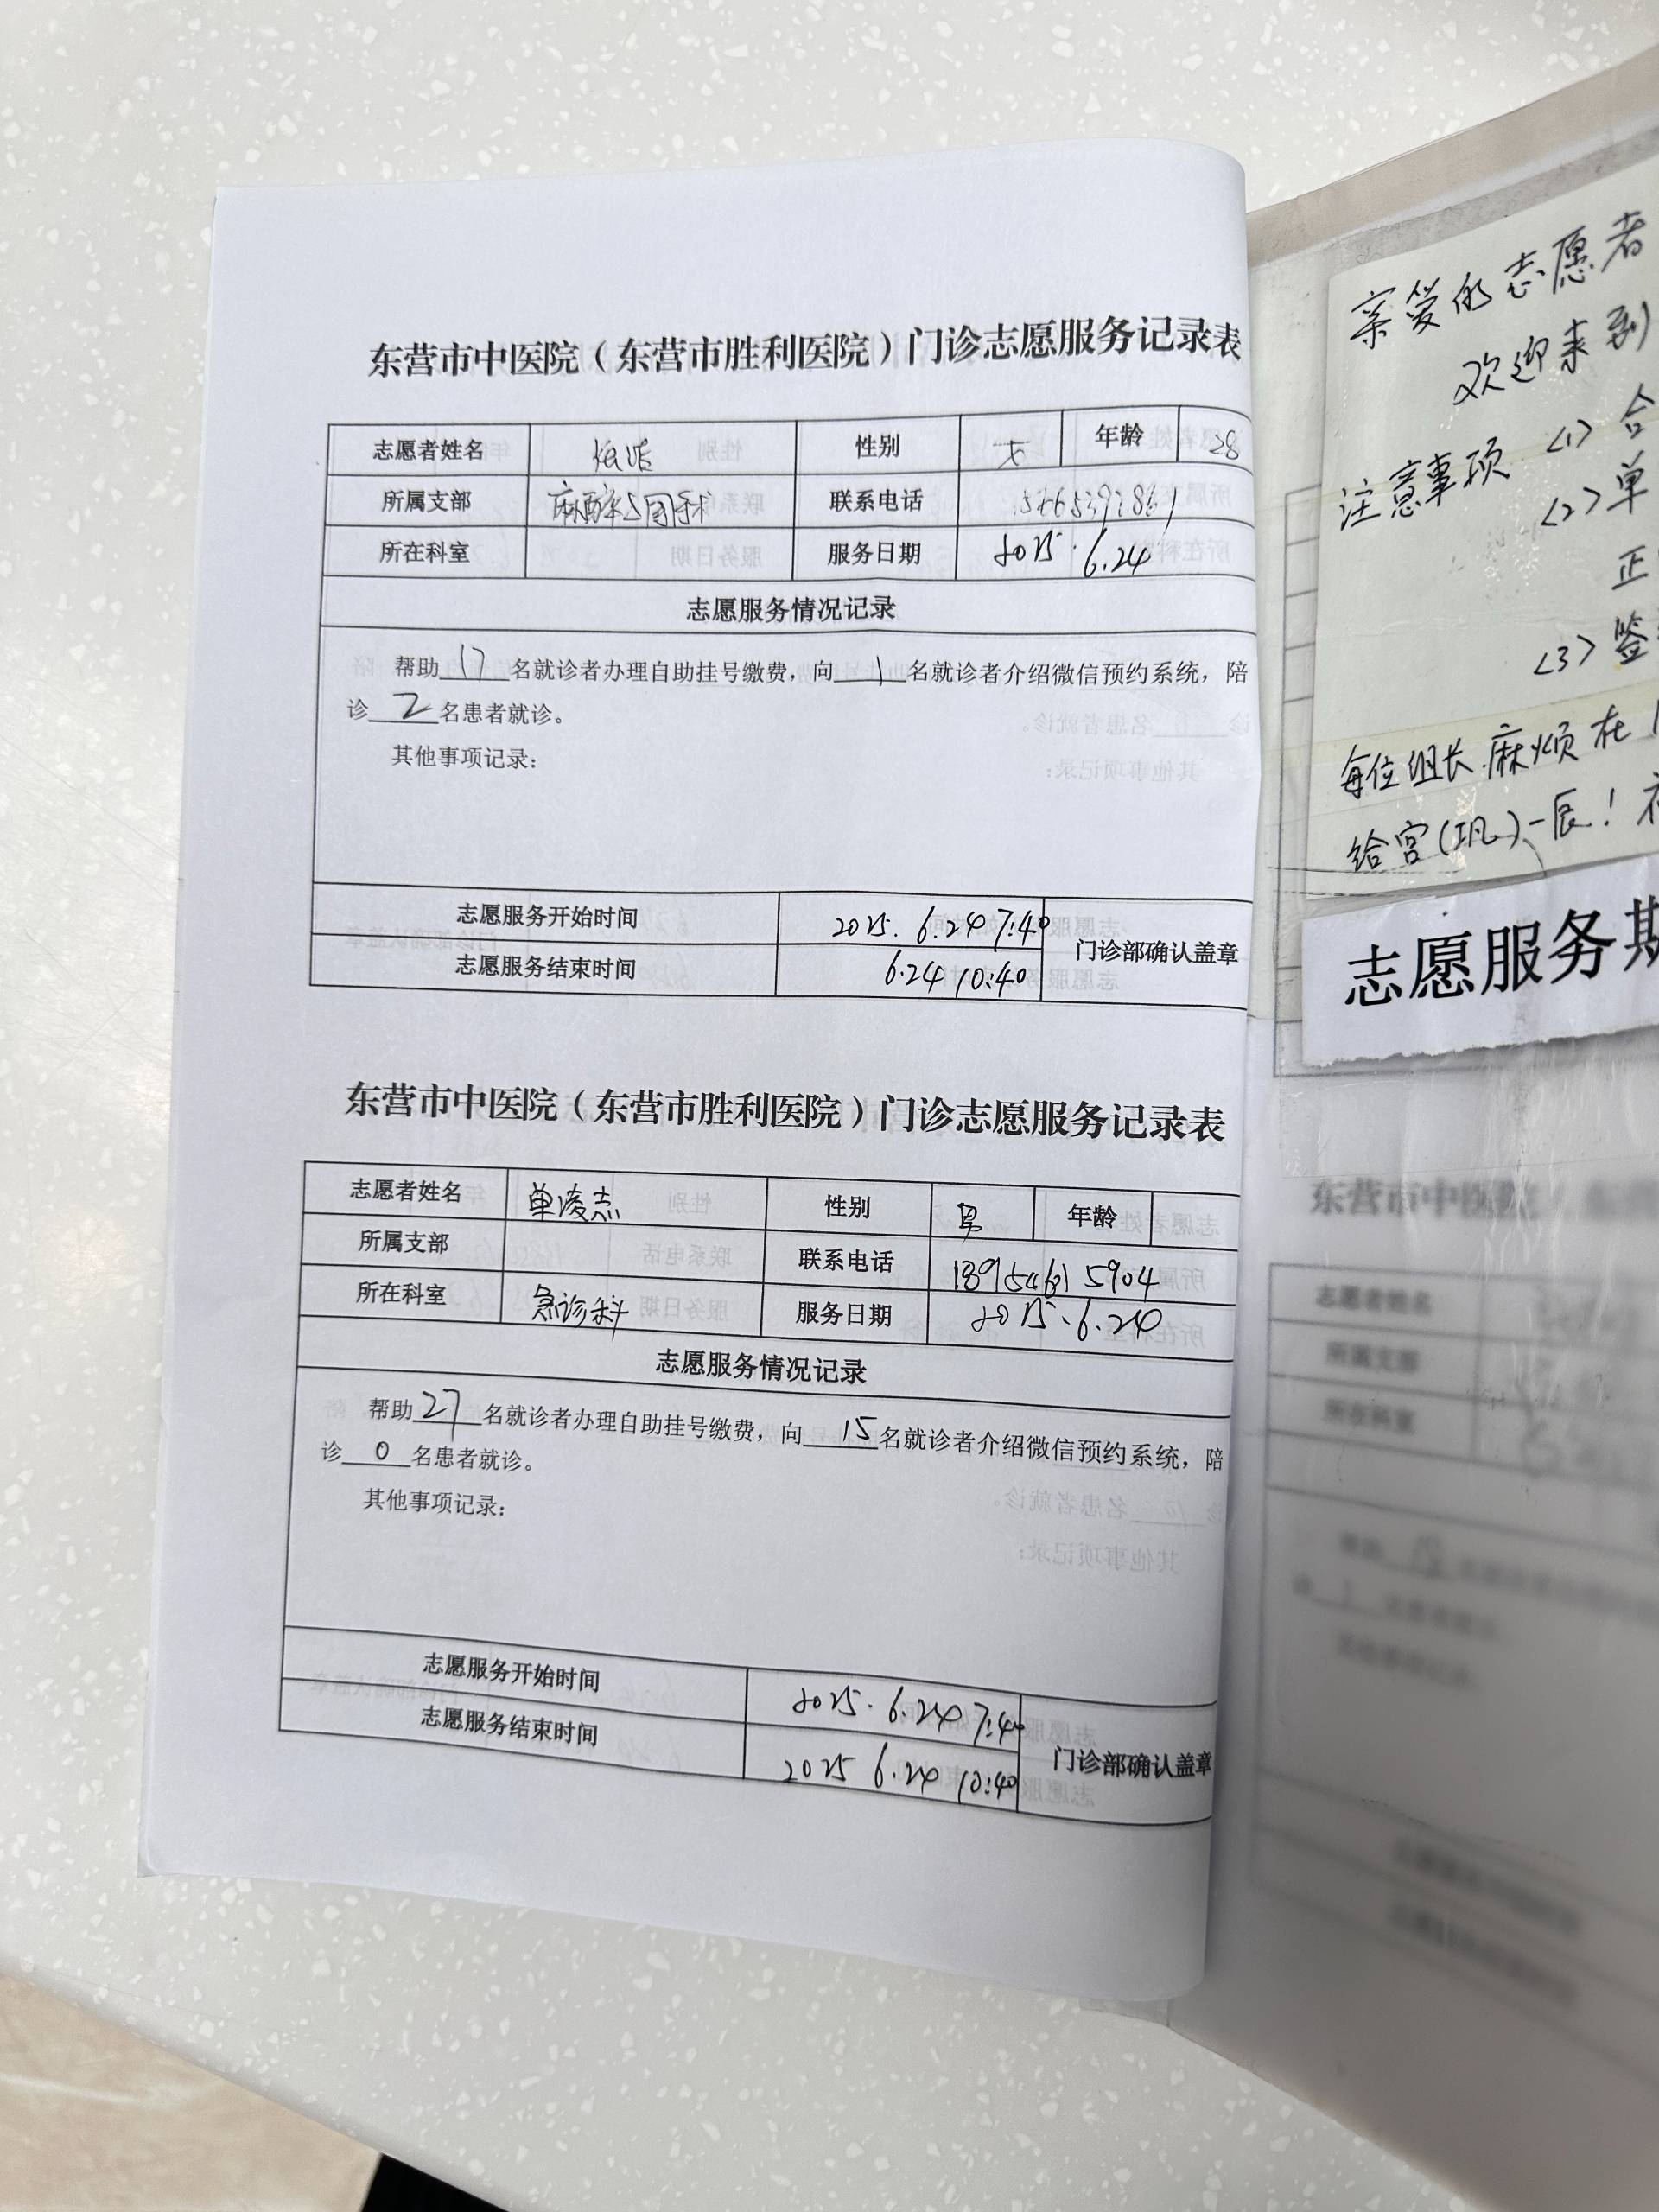 东营市中医院（东营市胜利医院）门诊志愿服务记录表
志愿者姓名 性别 女 年龄 28
所属支部 麻醉与围手术 联系电话
所在科室 服务日期 2025.6.24
志愿服务情况记录
帮助 17 名就诊者办理自助挂号缴费，向 1 名就诊者介绍微信预约系统，陪
诊 2 名患者就诊。
其他事项记录：
志愿服务开始时间 2025.6.24 7:40
门诊部确认盖章
志愿服务结束时间 6.24 10:40
东营市中医院（东营市胜利医院）门诊志愿服务记录表
志愿者姓名 单凌志 性别 男 年龄
所属支部 联系电话
所在科室 急诊科 服务日期 2025.6.24
志愿服务情况记录
帮助 27 名就诊者办理自助挂号缴费，向 15 名就诊者介绍微信预约系统，陪
诊 0 名患者就诊。
其他事项记录：
志愿服务开始时间 2025.6.24 7:40
门诊部确认盖章
志愿服务结束时间 2025 6.24 10:40
亲爱的志愿者
欢迎来到
注意事项 <1> 合
<2> 单
正
<3> 签
每位组长麻烦在
给宫(巩)一辰！
志愿服务期
东营市中医院
志愿者姓名
所属支部
所在科室